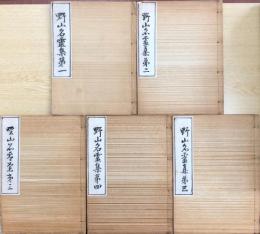 野山名靈集 第一
野山名霊集 第二
野山名霊集 第三
野山名靈集 第四
野山名靈集 第五